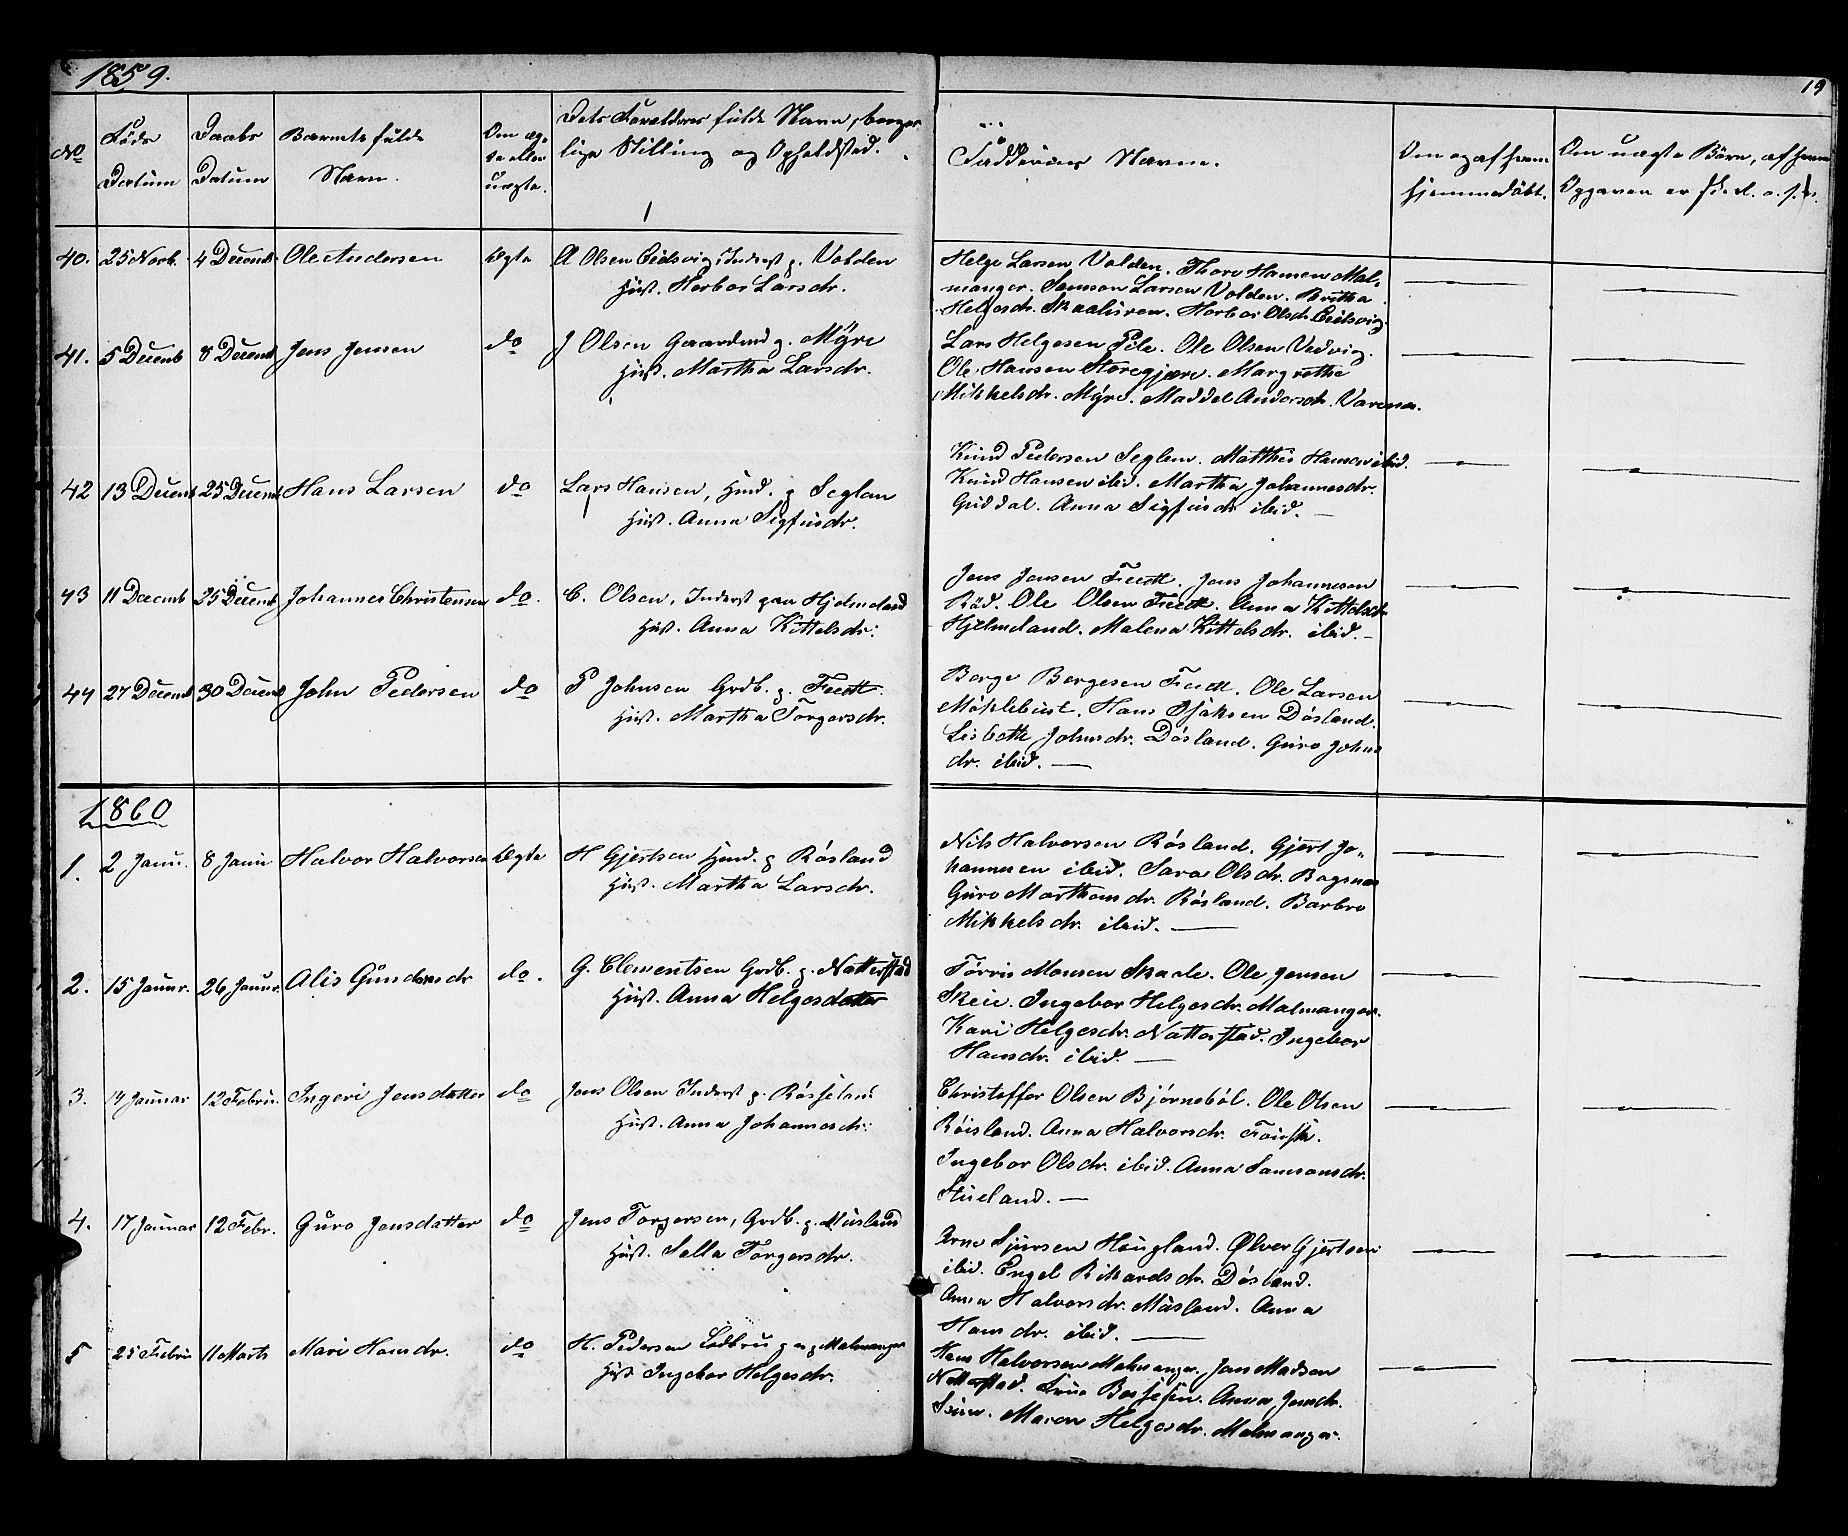 1859.
19
No
Føds
Datum
Daabs
Datum
Barnets fulde
Navn.
Om æg-
te eller
uægte.
Dets Forældres fulde Navn, borger-
lige Stilling og Opholdsted.
Faddernes Navne.
Om og af hvem
hjemmedøbt.
Om uægte Børn, af hvem
Opgaven er
40. 25 Novb. 4 Decemb Ole Andersen Ægte A Olsen Eidsvig, Inderst p. Valden
Hust. Herbor Larsdr.
Helge Larsen Valden. Thore Hansen Mal-
manger. Samson Larsen Volden. Britha
Helgesdr. Skaaluren. Herbor Olsdr. Eidsvig.
41. 5 Decemb 8 Decemb Jens Jensen do J Olsen Gaardmd p. Myre
Hust. Martha Larsdr.
Lars Helgesen Pile. Ole Olsen Vedvig.
Ole Hansen Storegjære. Margrethe
Mikkelsdr. Myre. Maddel Andersdr.
42 13 Decemb 25 Decemb Hans Larsen do Lars Hansen, Husmd. p Seglem
Hust. Anna Sigfusdr.
Knud Pedersen Seglem. Matthis Hansen ibid.
Knud Hansen ibid. Martha Johannesdr.
Guddal. Anna Sigfusdr ibid. —
43 11 Decemb 25 Decemb Johannes Christensen do. C. Olsen, Inderst paa Hjelmeland
Hust. Anna Kittelsdr.
Jens Jensen Feedt. Jens Johannesen
Rød. Ole Olsen Feedt. Anna Kittelsdr
Hjelmeland. Malena Kittelsdr. ibid. —
44 27 Decemb 30 Decemb John Pedersen do P Johnsen Grdb. p. Feedt.
Hust. Martha Torgersdr.
Børge Børgesen Feedt. Ole Larsen
Møklebust. Hans Isaksen Døsland.
Lisbeth Johnsdr. Døsland. Guro Johns
dr. ibid. —
1860
1. 2 Janu. 8 Janu Halvor Halvorsen Ægte H Gjertsen Husmd. p Røsland
Hust. Martha Larsdr.
Nils Halvorsen Røsland. Gjert Jo-
hannesen ibid. Sara Olsdr. Bogsnes
Guro Mathiasdr. Røsland. Barbro
Mikkelsdr. ibid. —
2. 15 Januar. 26 Januar. Alis Gundersdr do. G. Clementsen Grdb. p. Natterstad
Hust. Anna Helgesdatter
Tørris Monsen Skaale. Ole Jensen
Skeie. Ingebor Helgesdr. Malmanger.
Kari Helgesdr. Natterstad. Ingebor
Hansdr. ibid. —
3. 14 Januar 12 Febru. Ingeri Jensdatter do Jens Olsen Inderst p. Røsseland
Hust. Anna Johannesdr.
Christoffer Olsen Bjørnebøl. Ole Olsen
Røisland. Anna Halvorsdr.
Ingebor Olsdr. ibid. Anna Samsonsdr.
Stueland. —
4. 17 Januar 12 Febr. Guro Jensdatter do Jens Torgersen, Grdb. p. Musland
Hust. Sella Torgersdr.
Arne Sjursen Hougland. Ølver Gjertsen
ibid. Engel Rikardsdr. Døsland.
Anna Halvorsdr. Musland. Anna
Hansdr. ibid. —
5 25 Febru 11 Marts Mari Hansdr. do H. Pedersen Ladbru p. Malmanger
Hust Ingebor Helgesdr.
Hans Halvorsen Malmanger. Jens Madsen
Natterstad. Anna Jensdr.
Maren Helgesdr. Malmanger.